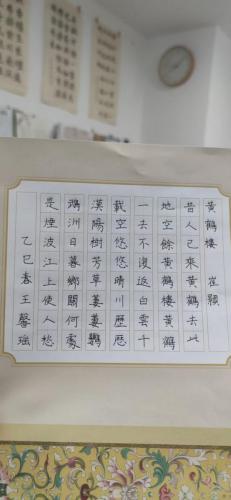 黃鶴樓 崔顥
昔人已來黃鶴去此
地空餘黃鶴樓黃鶴
一去不復返白雲千
載空悠悠晴川歷歷
漢陽樹芳草萋萋鸚
鵡洲日暮鄉關何處
是煙波江上使人愁
乙巳春王馨瑶